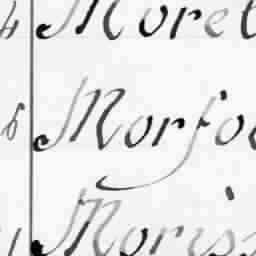 Moret
Morfoe
Moriss